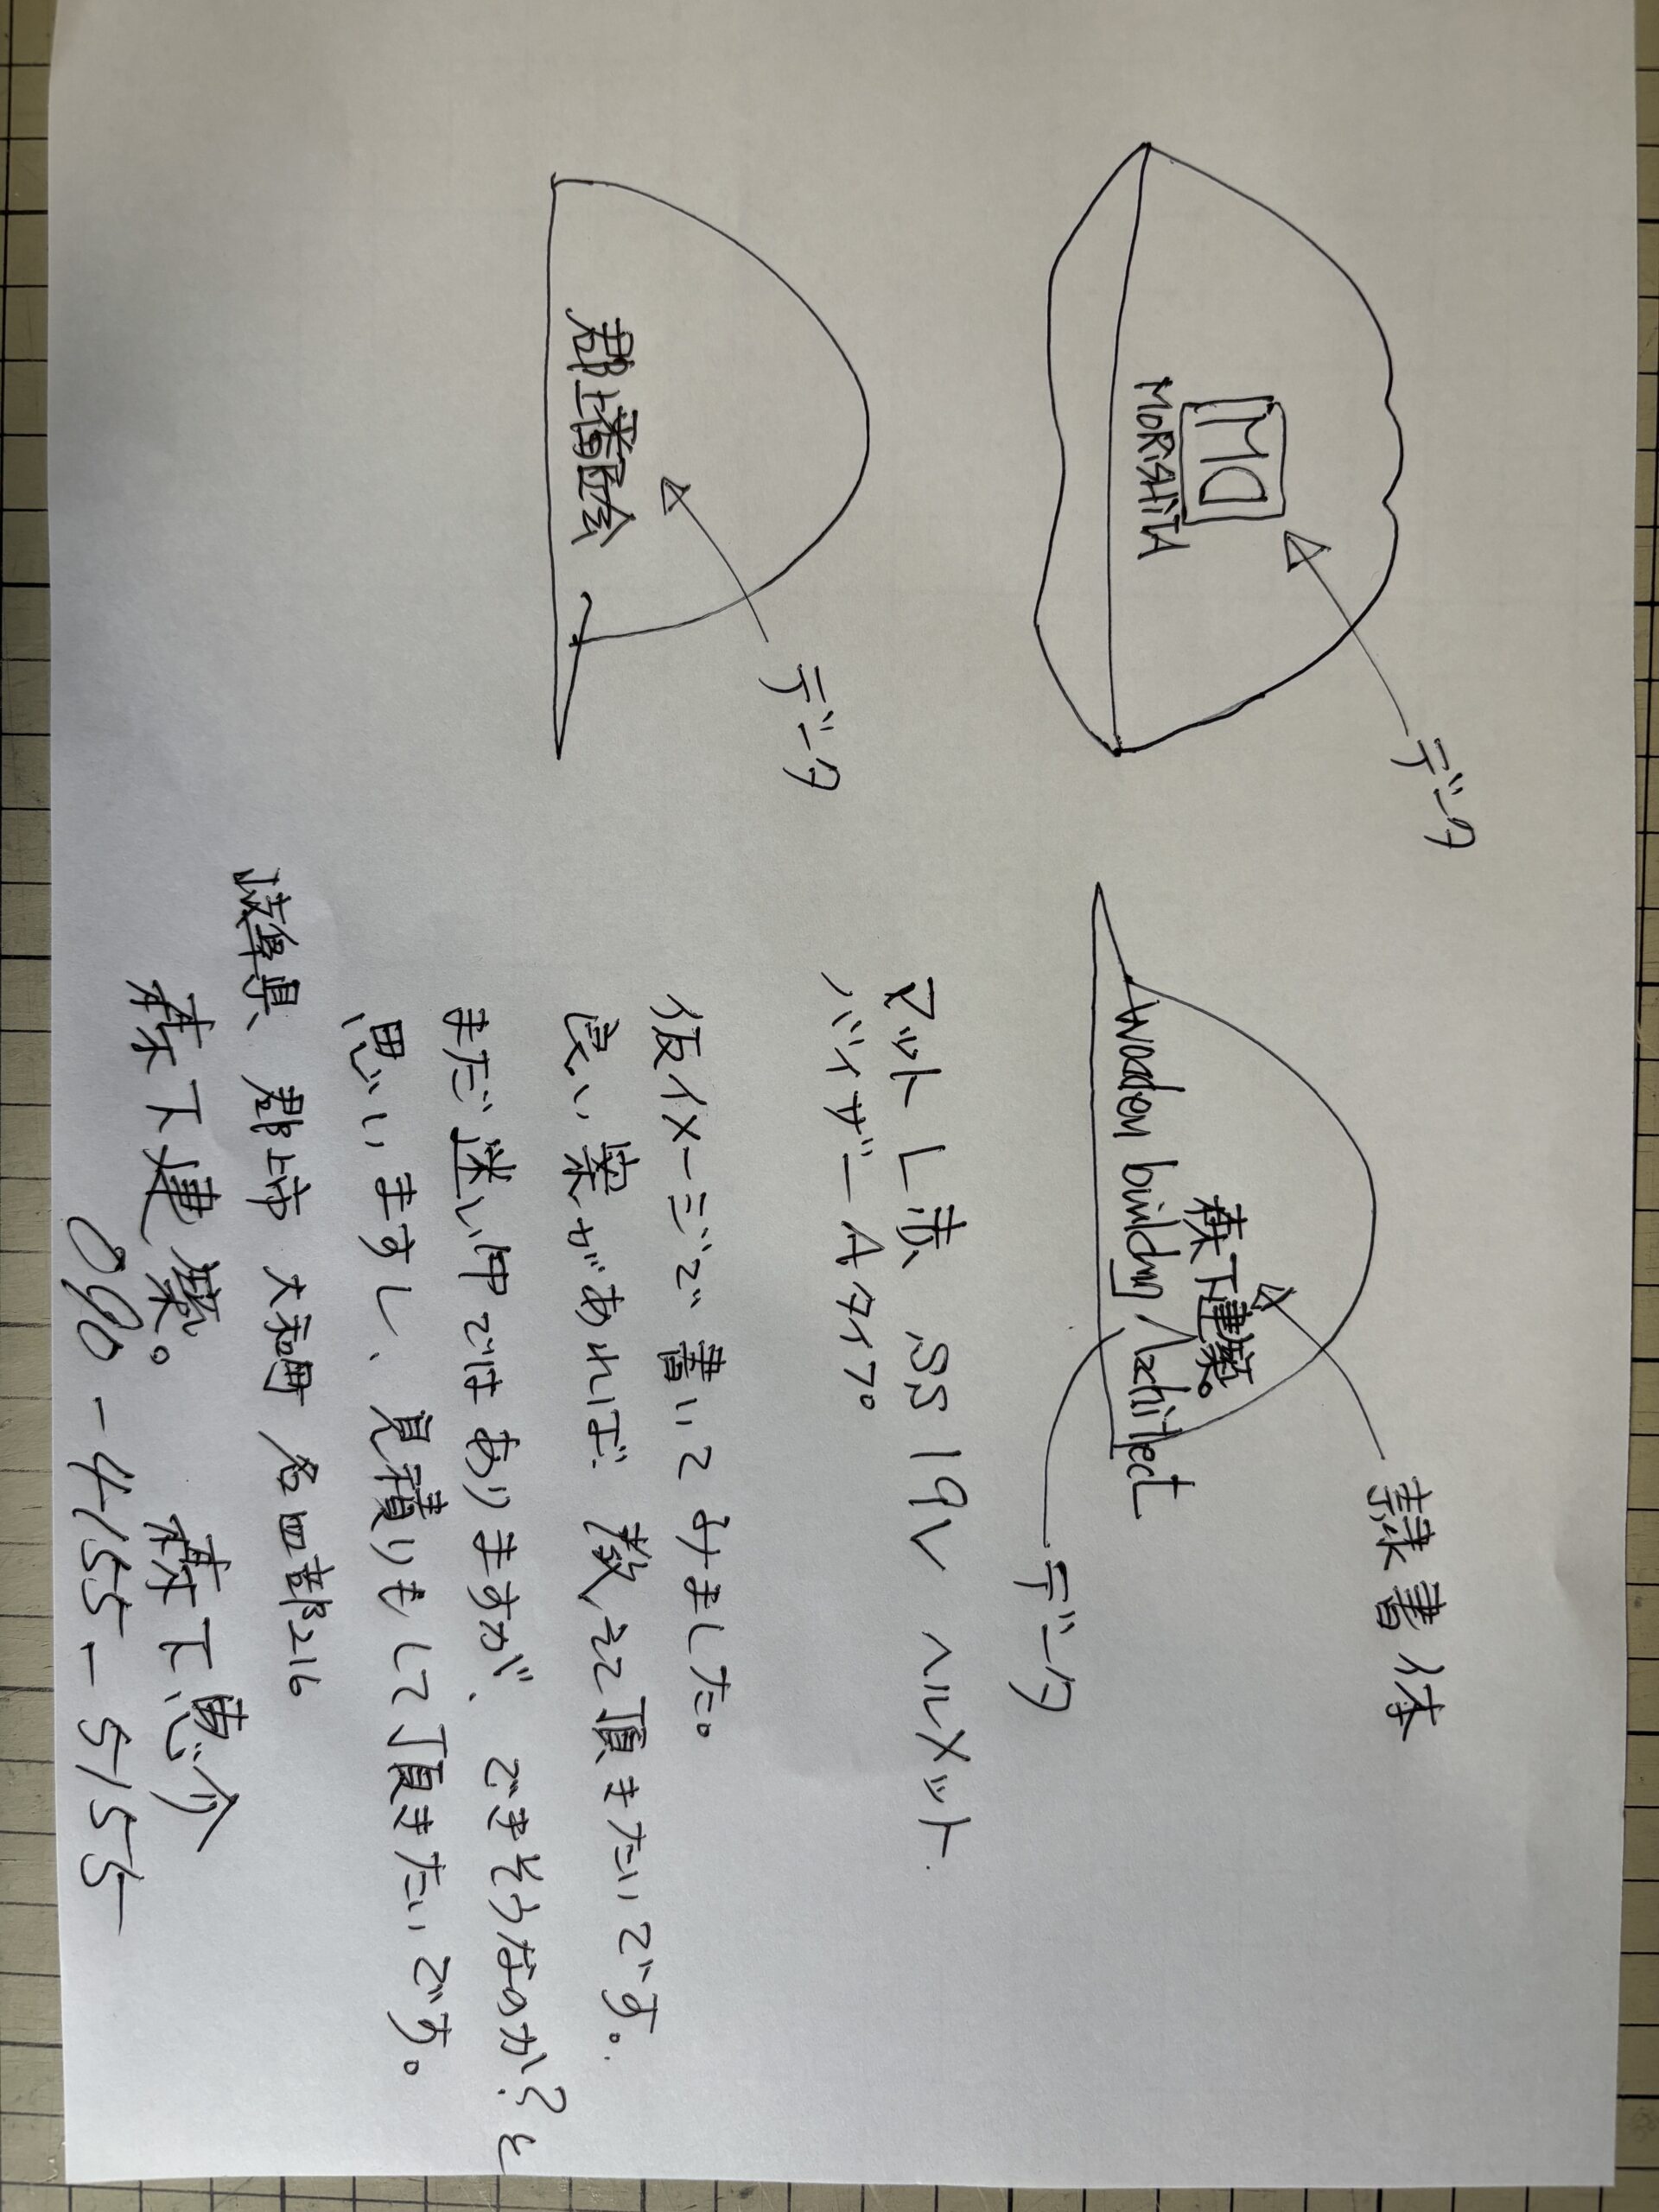 MO
MORiSHiTA
データ
隷書体
森下建築。
Wooden building / Architect
データ
郡上番匠会
データ
マットレ赤 SS19V ヘルメット
バイザーAタイプ
仮イメージで書いてみました。
良い案があれば教えて頂きたいです。
まだ迷い中ではありますが、できそうなのか?と
思いますし、見積りもして頂きたいです。
岐阜県 郡上市 大和町 名皿部216
森下建築。 森下恵介
090-4155-5155